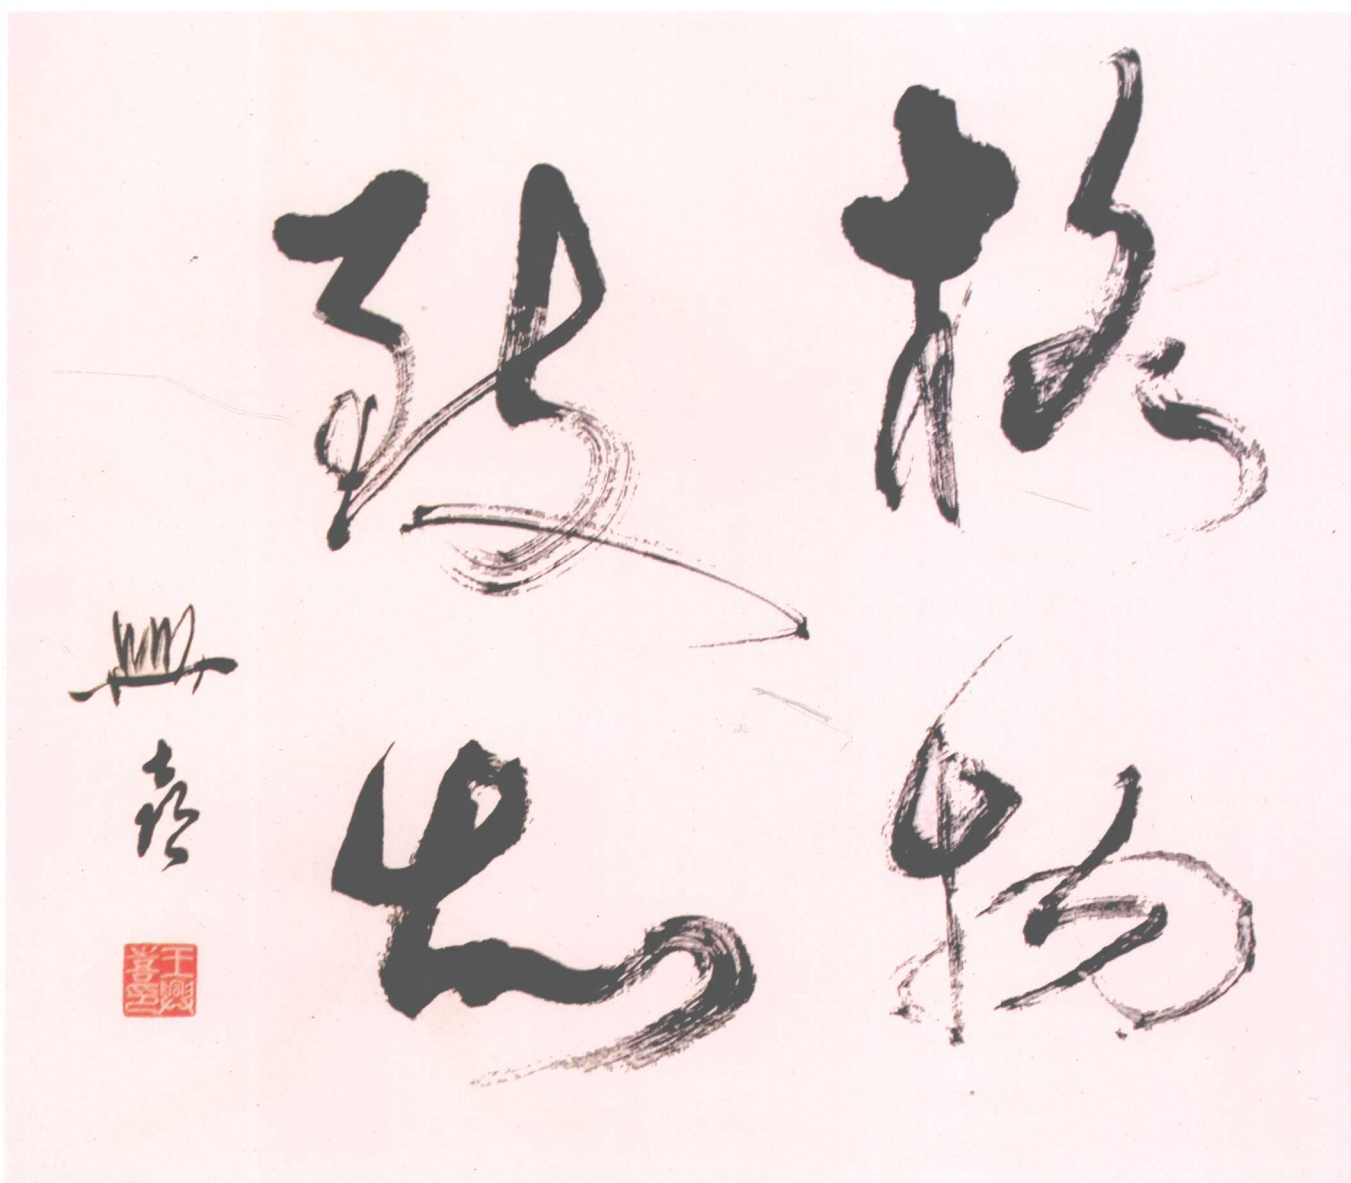 格物
致知
興喜
王興
喜印